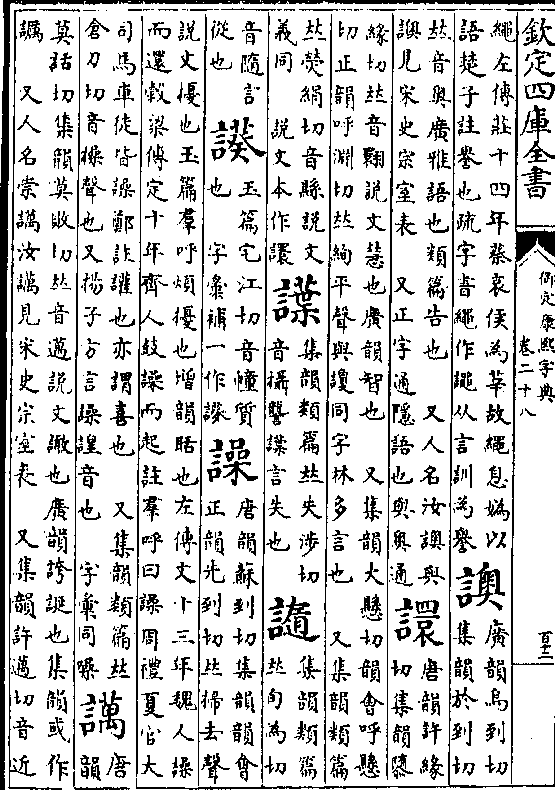 欽定四庫全書
御定康熙字典
卷二十八
百十二
繩左傳莊十四年蔡哀侯為莘故繩息媯以
語楚子註譽也疏字書繩作譝从言訓為譽
廣韻烏到切
集韻於到切
𠀤音奧廣雅語也類篇告也 又人名汝 與
見宋史宗室表 又正字通隱語也與奧通
譞
唐韻許緣
切集韻隳
緣切𠀤音翾說文慧也廣韻智也 又集韻大懸切韻會呼懸
切正韻呼淵切𠀤絢平聲與讂同字林多言也 又集韻類篇
𠀤熒絹切音縣說文
義同 說文本作譞
集韻類篇𠀤失涉切
音攝讋 言失也
集韻類篇
𠀤旬為切
音隨言
從也
玉篇宅江切音幢質
也 字彙補一作
譟
唐韻蘇到切集韻韻會
正韻先到切𠀤掃去聲
說文擾也玉篇羣呼煩擾也增韻聒也左傳文十三年魏人譟
而還穀梁傳定十年齊人鼓譟而起註羣呼曰譟周禮夏官大
司馬車徒皆譟鄭註讙也亦謂喜也 又集韻類篇𠀤
倉刀切音操聲也又揚子方言譟諻音也 字彙同噪
唐
韻
莫話切集韻莫敗切𠀤音邁說文譀也廣韻誇誕也集韻或作
又人名崇 汝 見宋史宗室表 又集韻許邁切音近